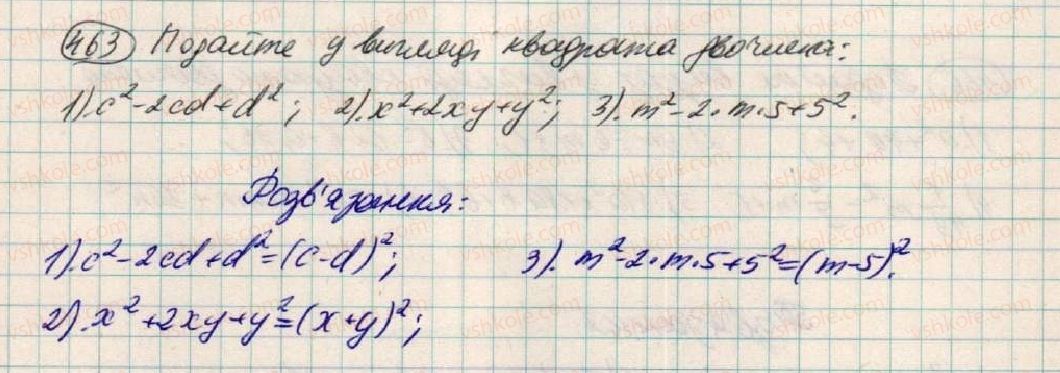 463 Подайте у вигляді квадрата двочлена:
1). c² - 2cd + d²; 2). x² + 2xy + y²; 3). m² - 2·m·5 + 5².
Розв'язання:
1). c² - 2cd + d² = (c - d)²; 3). m² - 2·m·5 + 5² = (m - 5)².
2). x² + 2xy + y² = (x + y)²;